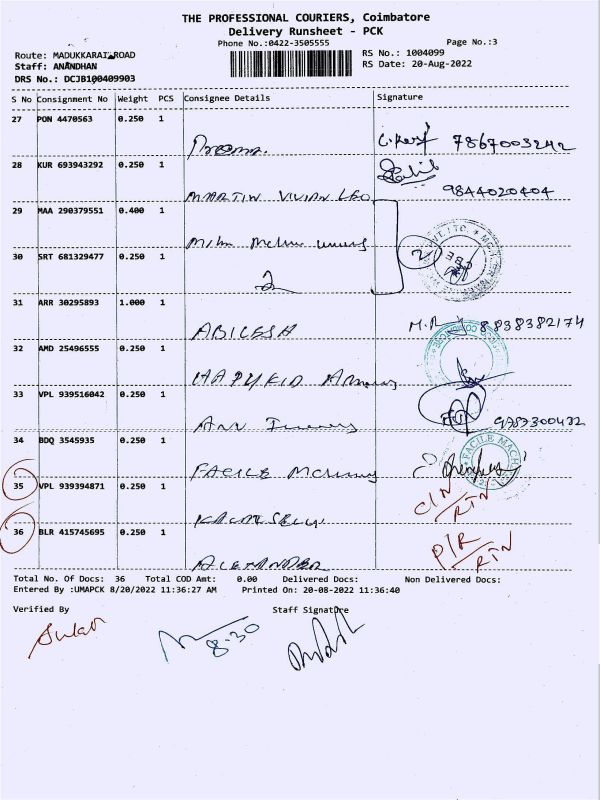 THE PROFESSIONAL COURIERS, Coimbatore
Delivery Runsheet - PCK
Phone No.:0422-3505555
Page No.:3
Route: MADUKKARAI ROAD
Staff: ANANDHAN
DRS No.: DCJB100409903
RS No.: 1004099
RS Date: 20-Aug-2022
S No Consignment No Weight PCS Consignee Details Signature
27 PON 4470563 0.250 1
Preema. 7867003242
28 KUR 693943292 0.250 1
MARTIN VIVIAN LEO 9844020404
29 MAA 290379551 0.400 1
30 SRT 681329477 0.250 1
2
31 ARR 30295893 1.000 1
ABILESH M.R 8838382174
32 AMD 25496555 0.250 1
33 VPL 939516042 0.250 1
34 BDQ 3545935 0.250 1
FACILE
FACILE MACH
35 VPL 939394871 0.250 1
C/N
RTN
36 BLR 415745695 0.250 1
P/R
RTN
ALEXANDER
Total No. Of Docs: 36 Total COD Amt: 0.00 Delivered Docs: Non Delivered Docs:
Entered By :UMAPCK 8/20/2022 11:36:27 AM Printed On: 20-08-2022 11:36:40
Verified By Staff Signature
8-30